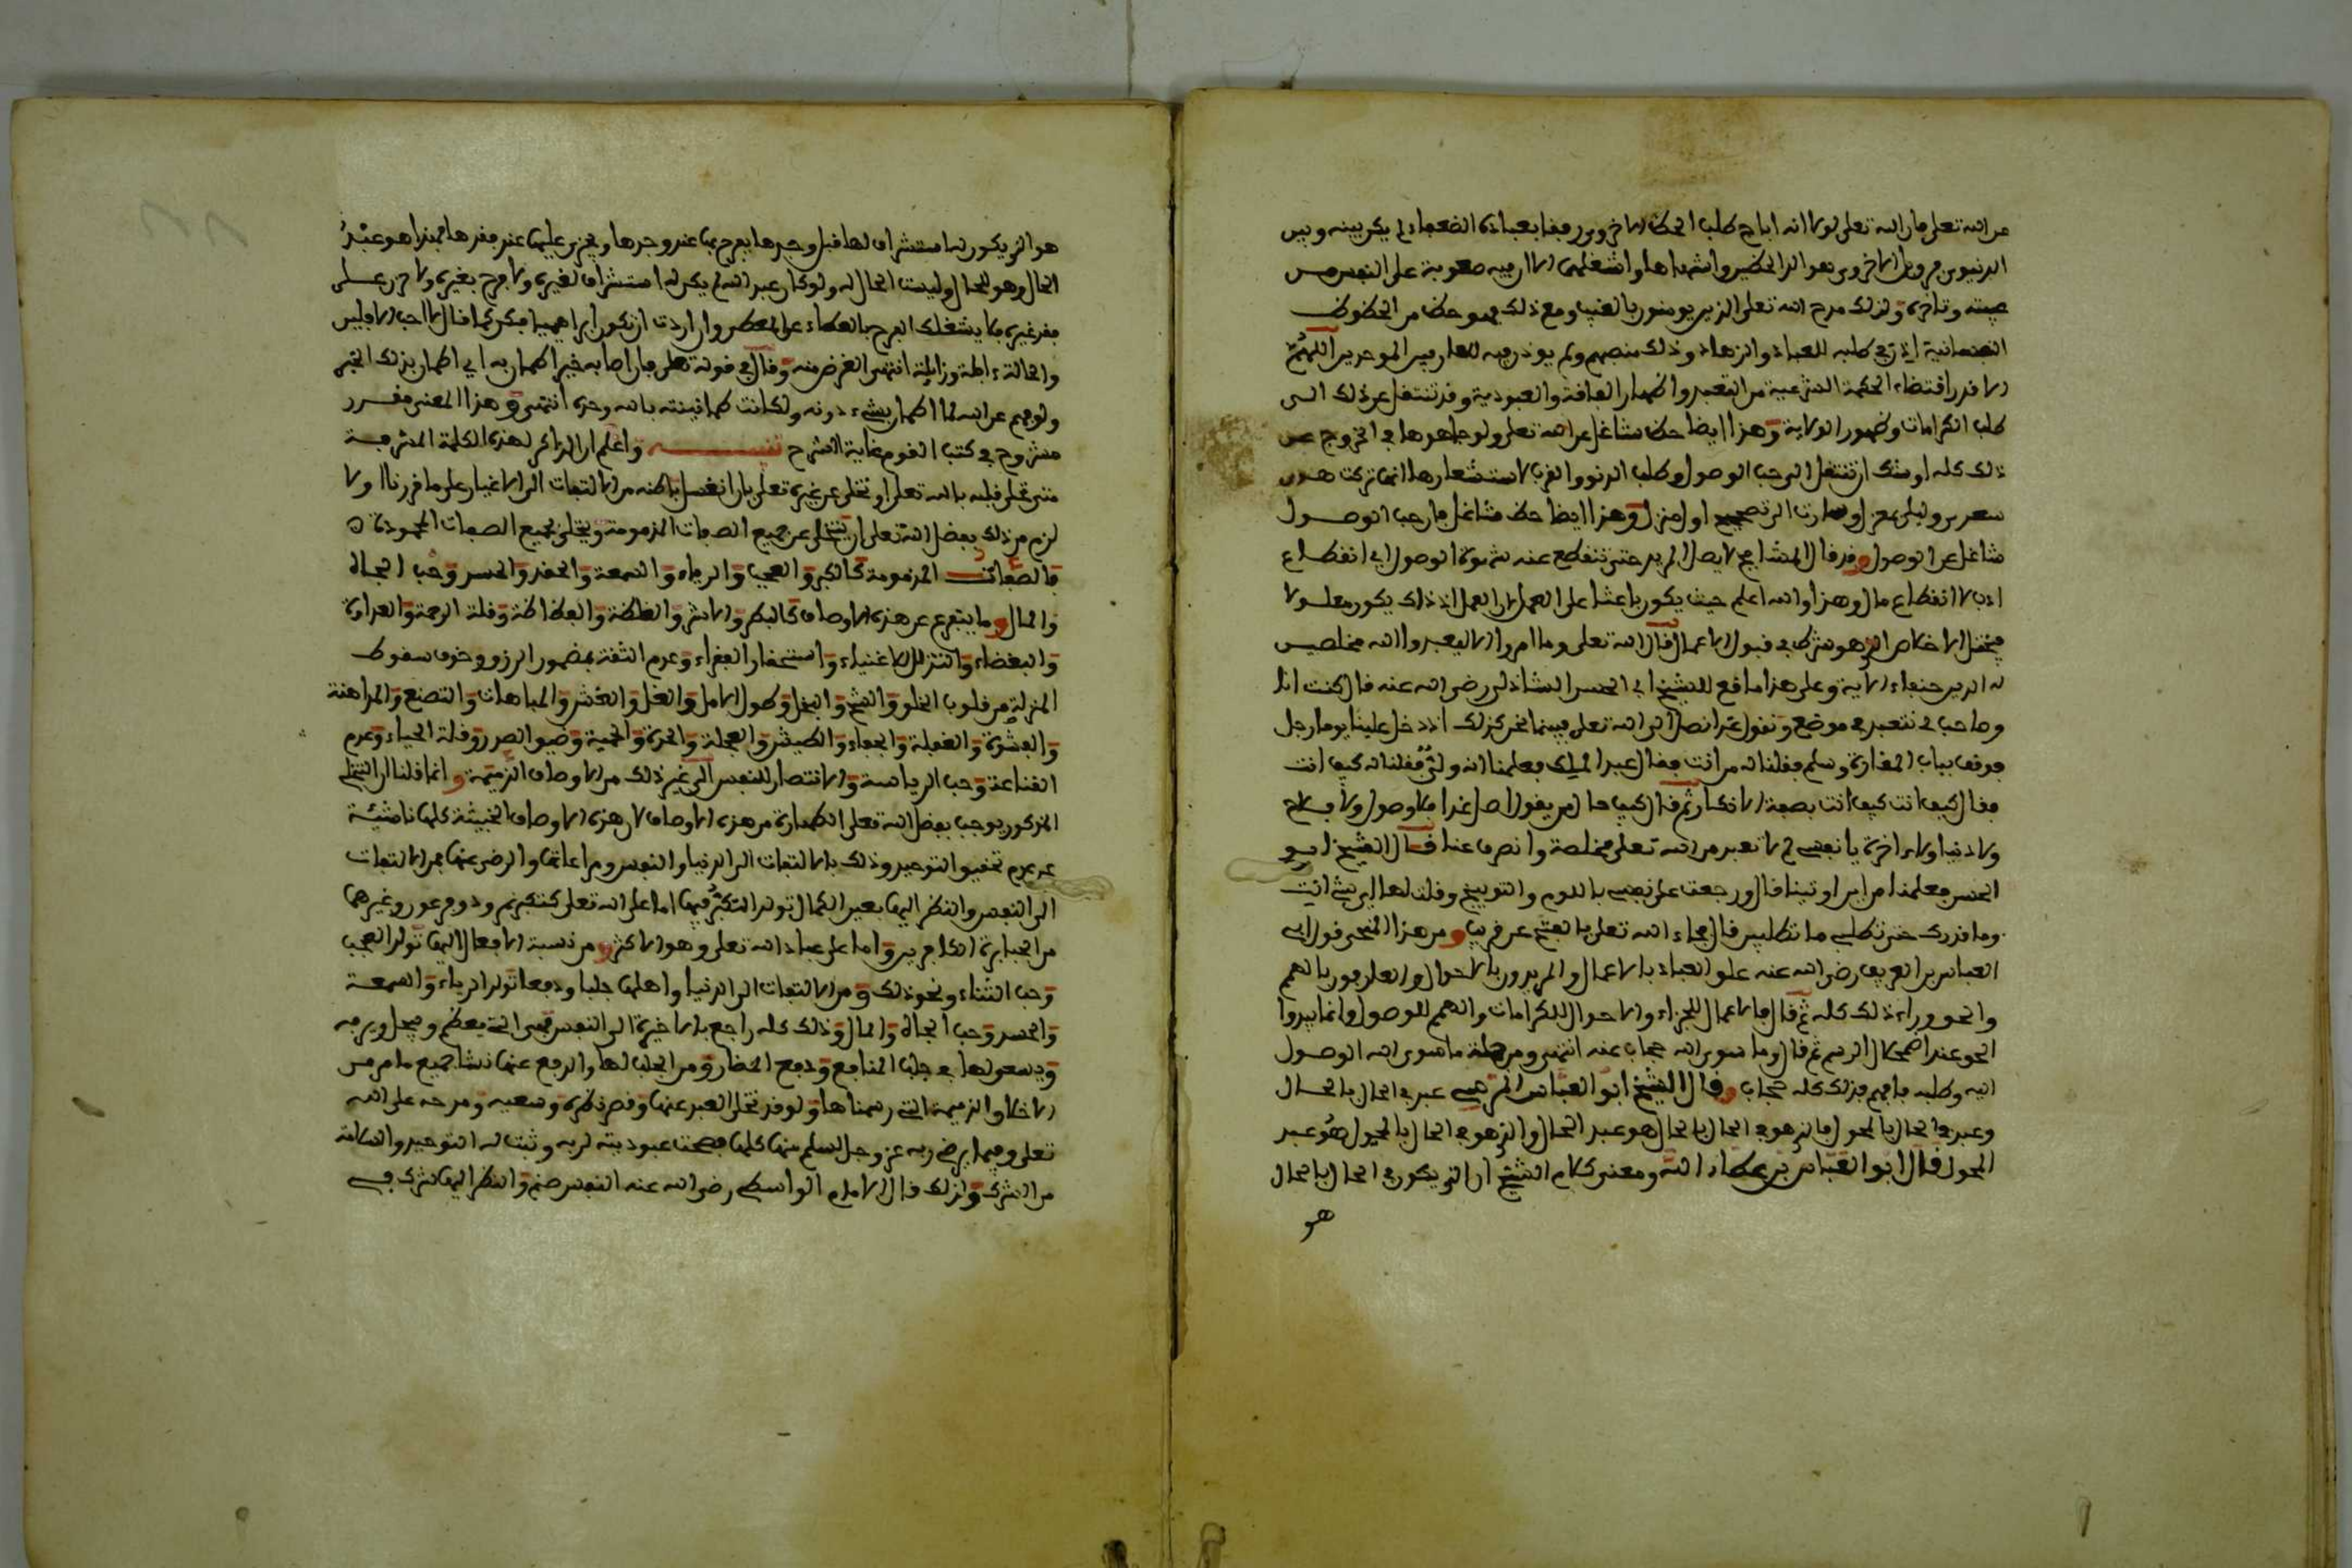 من الله تعلى فان الله تعلى لولا انه اباح طلب الحظ الاخروي رفقا بعباده الضعفاء لم يكن بينه وبين
الدنيوي فرق بل الاخروي هو الذ الحظين واشدها واشغلهما الا ان فيه صعوبة على النفس من
جهته وتاخره ولذلك مدح الله تعلى الذين يومنون بالغيب ومع ذلك فهو حظ من الحظوظ
النفسانية اذن في طلبه للعباد والزهاد وذلك منصبهم ولم يوذن فيه للعارفين الموحدين اللهم
الا قدر اقتضاء الحكمة الشرعية من التعبد واظهار الفاقة والعبودية وقد تنتقل عن ذلك الى
طلب الكرامات وظهور الولاية وهذا ايضا حظ شاغل عن الله تعلى ولو جاهدها في الخروج عن
ذلك كله اوشك ان تنتقل الى حب الوصول وطلب الدنو والقرب لاستشعارها انما تركت هوى
سعدى وليلى بمعزل وصارت الى تصحيح اول منزل وهذا ايضا حظ شاغل فان حب الوصول
شاغل عن الوصول وقد قال المشايخ لا يصل المريد حتى تنقطع عنه شهوة الوصول اي انقطاع
ادب لا انقطاع ملل وهذا والله اعلم حيث يكون باعثا على العمل لان العمل اذ ذاك يكون معلولا
فيختل الاخلاص الذي هو شرط في قبول الاعمال قال الله تعلى وما امروا الا ليعبدوا الله مخلصين
له الدين حنفاء الاية وعلى هذا ما وقع للشيخ ابي الحسن الشاذلي رضي الله عنه قال كنت انا
وصاحب لي نتعبد في موضع ونقول غدا نصل الى الله تعلى فبينما نحن كذلك اذ دخل علينا يوما رجل
فوقف بباب المغارة وسلم فقلنا له من انت فقال عبد الملك فعلمنا انه ولي فقلنا له كيف انت
فقال كيف انت كيف انت بصفة الانكار ثم قال كيف حال من يقول اصل غدا فلا وصول ولا فلاح
ولا دنيا ولا اخرة يا نفس لم لا تعبد من الله تعلى مخلصة وانصرف عنا قال الشيخ ابو
الحسن فعلمنا من اين اوتينا قال ورجعت على نفسي باللوم والتوبيخ وقلت لها اي شيء انت
وما قدرك حتى تطلبي ما تطلبين قال فجاء الله تعلى بالفتح عن قريب ومن هذا المنحى قول ابي
العباس بن العريف رضي الله عنه علق العباد بالاعمال والمريدون بالاحوال والعارفون بالهمم
والحق وراء ذلك كله ثم قال فالاعمال للجزاء والاحوال للكرامات والهمم للوصول وانما يبدوا
الحق عند اضمحلال الرسم ثم قال وما سوى الله حجاب عنه انتهى ومن جملة ما سوى الله الوصول
اليه وطلبه فافهم فذلك كله حجاب وقال الشيخ ابو العباس المرسي عبد في الحال بالحال
وعبد في الحال بالمحول فالذي هو في الحال بالحال هو عبد الحال والذي هو في الحال بالمحول هو عبد
المحول قال ابو العباس بن عطاء الله ومعنى كلام الشيخ ان الذي يكون في الحال بالحال
هو
هو الذي يكون له استشراف لها قبل وجدها يفرح بها عند وجدها ويحزن عليها عند فقدها فهذا هو عبد
الحال وهو للحال وليست الحال له ولو كان عبد الله لم يكن له استشراف لغيره ولا فرح بغيره ولا حزن على
فقد غيره فلا يشغلك الفرح بالعطاء عن المعطي وان اردت ان تكون ابراهيميا فكن كما قال لا احب الافلين
والحالة ءافلة وزايلة انتهى الغرض منه وقال في قوله تعلى فان اصابه خير اطمان به اي اطمان بذلك الخير
ولو فهم عن الله لما اطمان بشيء دونه ولكانت طمانينته بالله وحده انتهى وهذا المعنى مقرر
مشروح في كتب القوم غاية الشرح تنبيه واعلم ان الذاكر لهذه الكلمة المشرفة
متى تحلى قلبه بالله تعلى او تخلى عن غيره تعلى بان انغسل باطنه من الالتفات الى الاغيار على ما قررناه اولا
لزم من ذلك بفضل الله تعلى ان يتخلى عن جميع الصفات المذمومة ويتحلى بجميع الصفات المحمودة
فالصفات المذمومة كالكبر والعجب والرياء والسمعة والحقد والحسد وحب الجاه
والمال وما يتفرع عن هذه الاوصاف كالبطر والاشر والغلظة والفظاظة وقلة الرحمة والعداوة
والبغضاء والتذلل للاغنياء واستحقار الفقراء وعدم الثقة بمضمون الرزق وخوف سقوط
المنزلة من قلوب الخلق والشح والبخل وطول الامل والغل والغش والمباهات والتصنع والمداهنة
والقسوة والغفلة والجفاء والطيش والعجلة والحدة والحمية وضيق الصدر وقلة الحياء وعدم
القناعة وحب الرياسة والانتصار للنفس الى غير ذلك من الاوصاف الذميمة وانما قلنا ان التخلي
المذكور يوجب بفضل الله تعلى الطهارة من هذه الاوصاف لان هذه الاوصاف الخبيثة كلها ناشئة
عن عدم تحقيق التوحيد وذلك بالالتفات الى الدنيا والنفس ومراعاتها والرضى عنها فمن الالتفات
الى النفس والنظر اليها بعين الكمال تولد التكبر فيها اما على الله تعلى كتكبر نمرود وفرعون وغيرهما
من الجبابرة الكافرين واما على عباد الله تعلى وهو الاكثر ومن نسبة الافعال اليها تولد العجب
وحب الثناء ونحو ذلك ومن الالتفات الى الدنيا واهلها جلبا ودفعا تولد الرياء والسمعة
والحسد وحب الجاه والمال وذلك كله راجع بالاخرة الى النفس فهي التي يعظم ويبجل ويرفه
ويسعى لها في جلب المنافع ودفع المضار ومن الجلب لها والدفع عنها نشا جميع ما مر من
الاخلاق الذميمة التي رسمناها ولو قد تخلى العبد عنها وقصر نظره وسعيه ومدحه على الله
تعلى وفيما يرضي ربه عز وجل لسلم منها كلها فصحت عبوديته لربه وثبت له التوحيد والسلامة
من الشرك ولذلك قال الامام الواسطي رضي الله عنه النفس صنم والنظر اليها شرك في